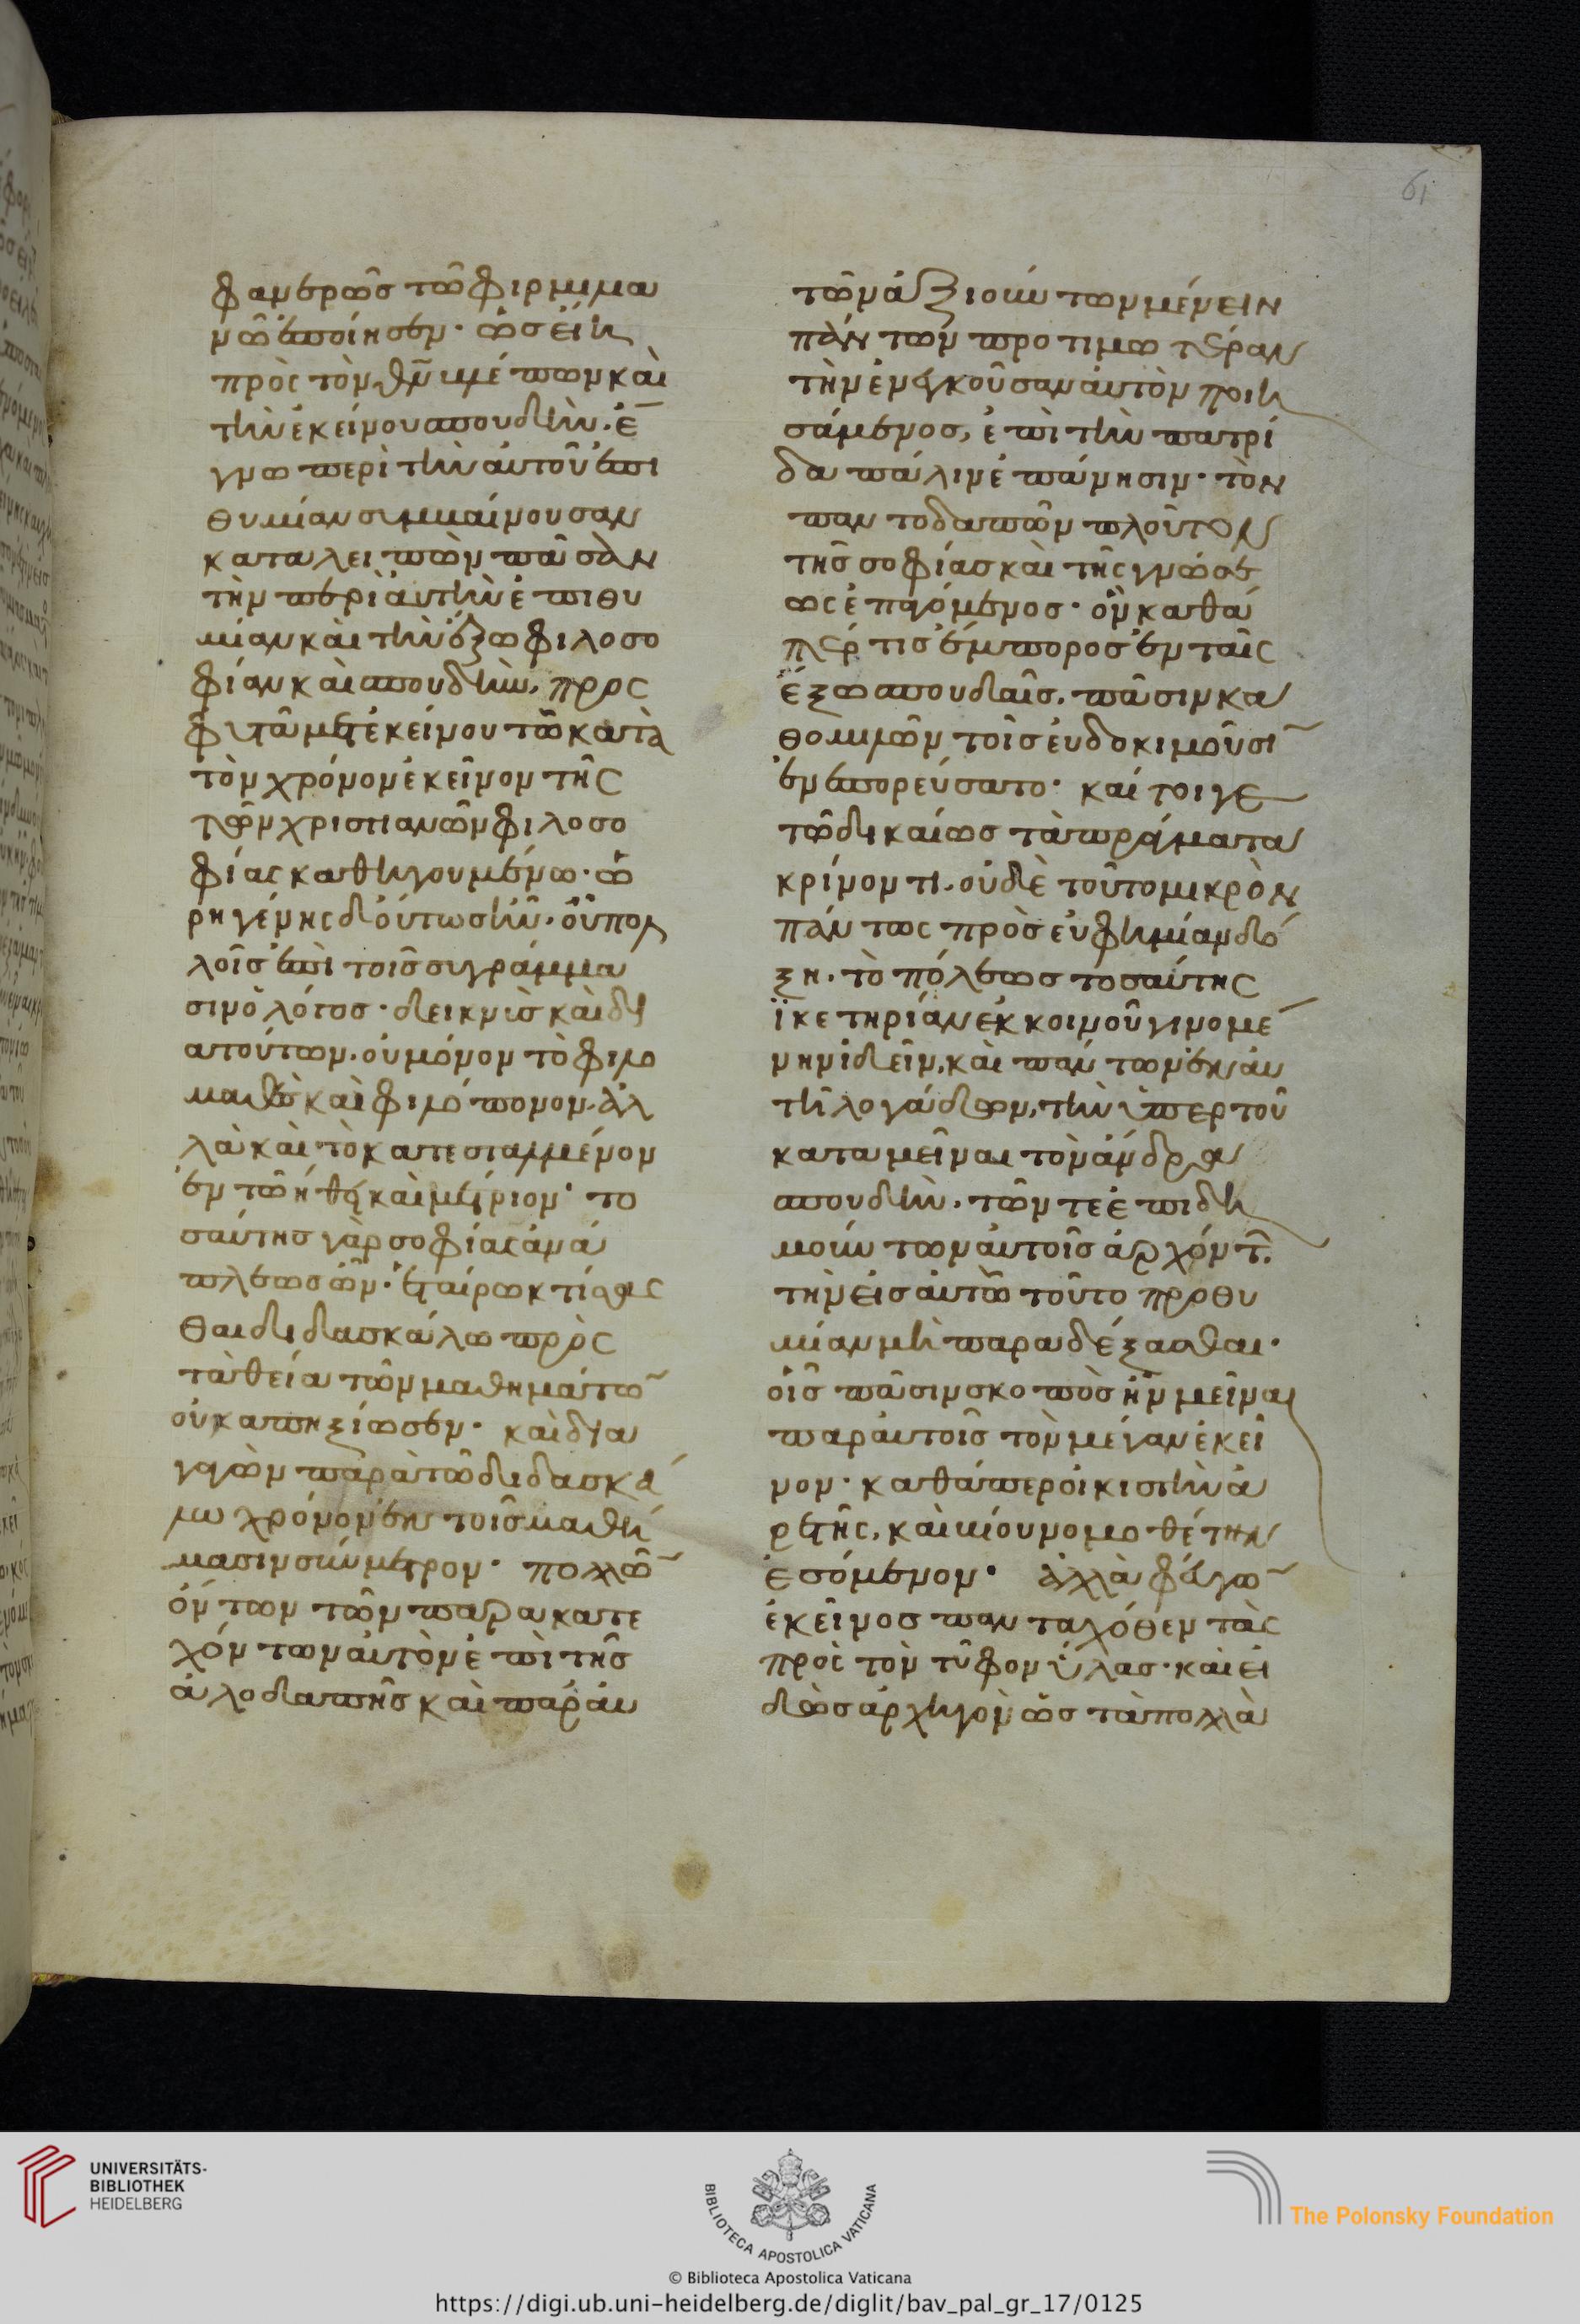 φανερῶς τῶ φιρμιλια
νῶ ἐποίησεν· ὡς εἴη
πρὸς τὸν θν̄ βλέπων καὶ
τὴν ἐκείνου σπουδὴν· ἔ
γνω περὶ τὴν αὐτοῦ ἐπι
θυμίαν συμβαίνουσαν
καταλειπὼν πᾶσαν
τὴν περὶ αὐτὴν ἐπιθυ
μίαν καὶ τὴν ἔξω φιλοσο
φίαν καὶ σπουδὴν, προς
φοιτᾶ μετ' ἐκείνου τῶ κατὰ
τὸν χρόνον ἐκεῖνον τῆς
τῶν χριστιανῶν φιλοσο
φίας καθηγουμένω· ὠ
ριγένης δ' οὗτος ἦν· οὗ πολ
λοῖς ἐπὶ τοῖς συγράμμα
σιν ὁ λόγος· δεικνὺς καὶ δι
α τούτων· οὐ μόνον τὸ φιλο
μαθὲς καὶ φιλόπονον· ἀλ
λὰ καὶ τὸ κατεσταλμένον
ἐν τῶ ἤθει καὶ μέτριον· το
σαύτης γὰρ σοφίας ἀνά
πλεως ὢν· ἑταίρω κτίσας
θαι διδασκάλω πρὸς
τὰ θεῖα τῶν μαθημάτω̄
οὐκ ἀπηξίωσεν· καὶ δια
γαγὼν παρὰ τῶ διδασκά
λω χρόνον ἐν τοῖς μαθή
μασιν σύμμετρον· πολλῶ̄
ὄντων τῶν παρακατε
χόντων αὐτὸν ἐπὶ τῆς
ἀλοδαπῆς καὶ παρ' αὐ
τῶν ἀξιούντων μένειν
πάντων προτιμωτέραν
τὴν ἐνεγκοῦσαν αὐτὸν ποιη
σάμενος, ἐπὶ τὴν πατρί
δα πάλιν ἐπάνησιν· τὸν
παντοδαπῶν πλοῦτον
τῆς σοφίας καὶ τῆς γνώσε
ως ἐπαγόμενος· ὃν καθά
περ τις ἔμπορος ἐν ταῖς
ἔξω σπουδαῖς. πᾶσιν κα
θομιλῶν τοῖς εὐδοκιμοῦσι
ἐνεπορεύσατο· καί τοι γε
τῶ δικαίως τὰ πράγματα
κρίνοντι· οὐδὲ τοῦτο μικρὸν
πάντως πρὸς εὐφημίαν δό
ξη. τὸ πόλεως τοσαύτης
ἱκετηρίαν ἐκ κοινοῦ γινομέ
νην ἰδεῖν, καὶ πάντων ἐν αὐ
τῆ λογάδων, τὴν ὑπερ τοῦ
καταμεῖναι τὸν ἄνδρα
σπουδὴν. τῶν τε ἐπιδη
μούντων αὐτοῖς ἀρχόντ̄.
τὴν εἰς αὐτῶ τοῦτο προθυ
μίαν μὴ παραδέξασθαι·
οἷς πᾶσιν σκοπὸς ἦν μεῖναι
παρ' αὐτοῖς τὸν μέγαν ἐκεῖ
νον· καθάπερ οἰκιστὴν ἀ
ρετῆς, καὶ βίου νομοθέτην
ἐσόμενον· ἀλλὰ φεύγω̄
ἐκεῖνος πανταχόθεν τὰς
πρὸς τὸν τῦφον ὕλας· καὶ εἰ
δὼς ἀρχηγὸν ὡς τὰ πολλὰ
61
UNIVERSITÄTS-
BIBLIOTHEK
HEIDELBERG
BIBLIOTECA APOSTOLICA VATICANA
The Polonsky Foundation
© Biblioteca Apostolica Vaticana
https://digi.ub.uni-heidelberg.de/diglit/bav_pal_gr_17/0125